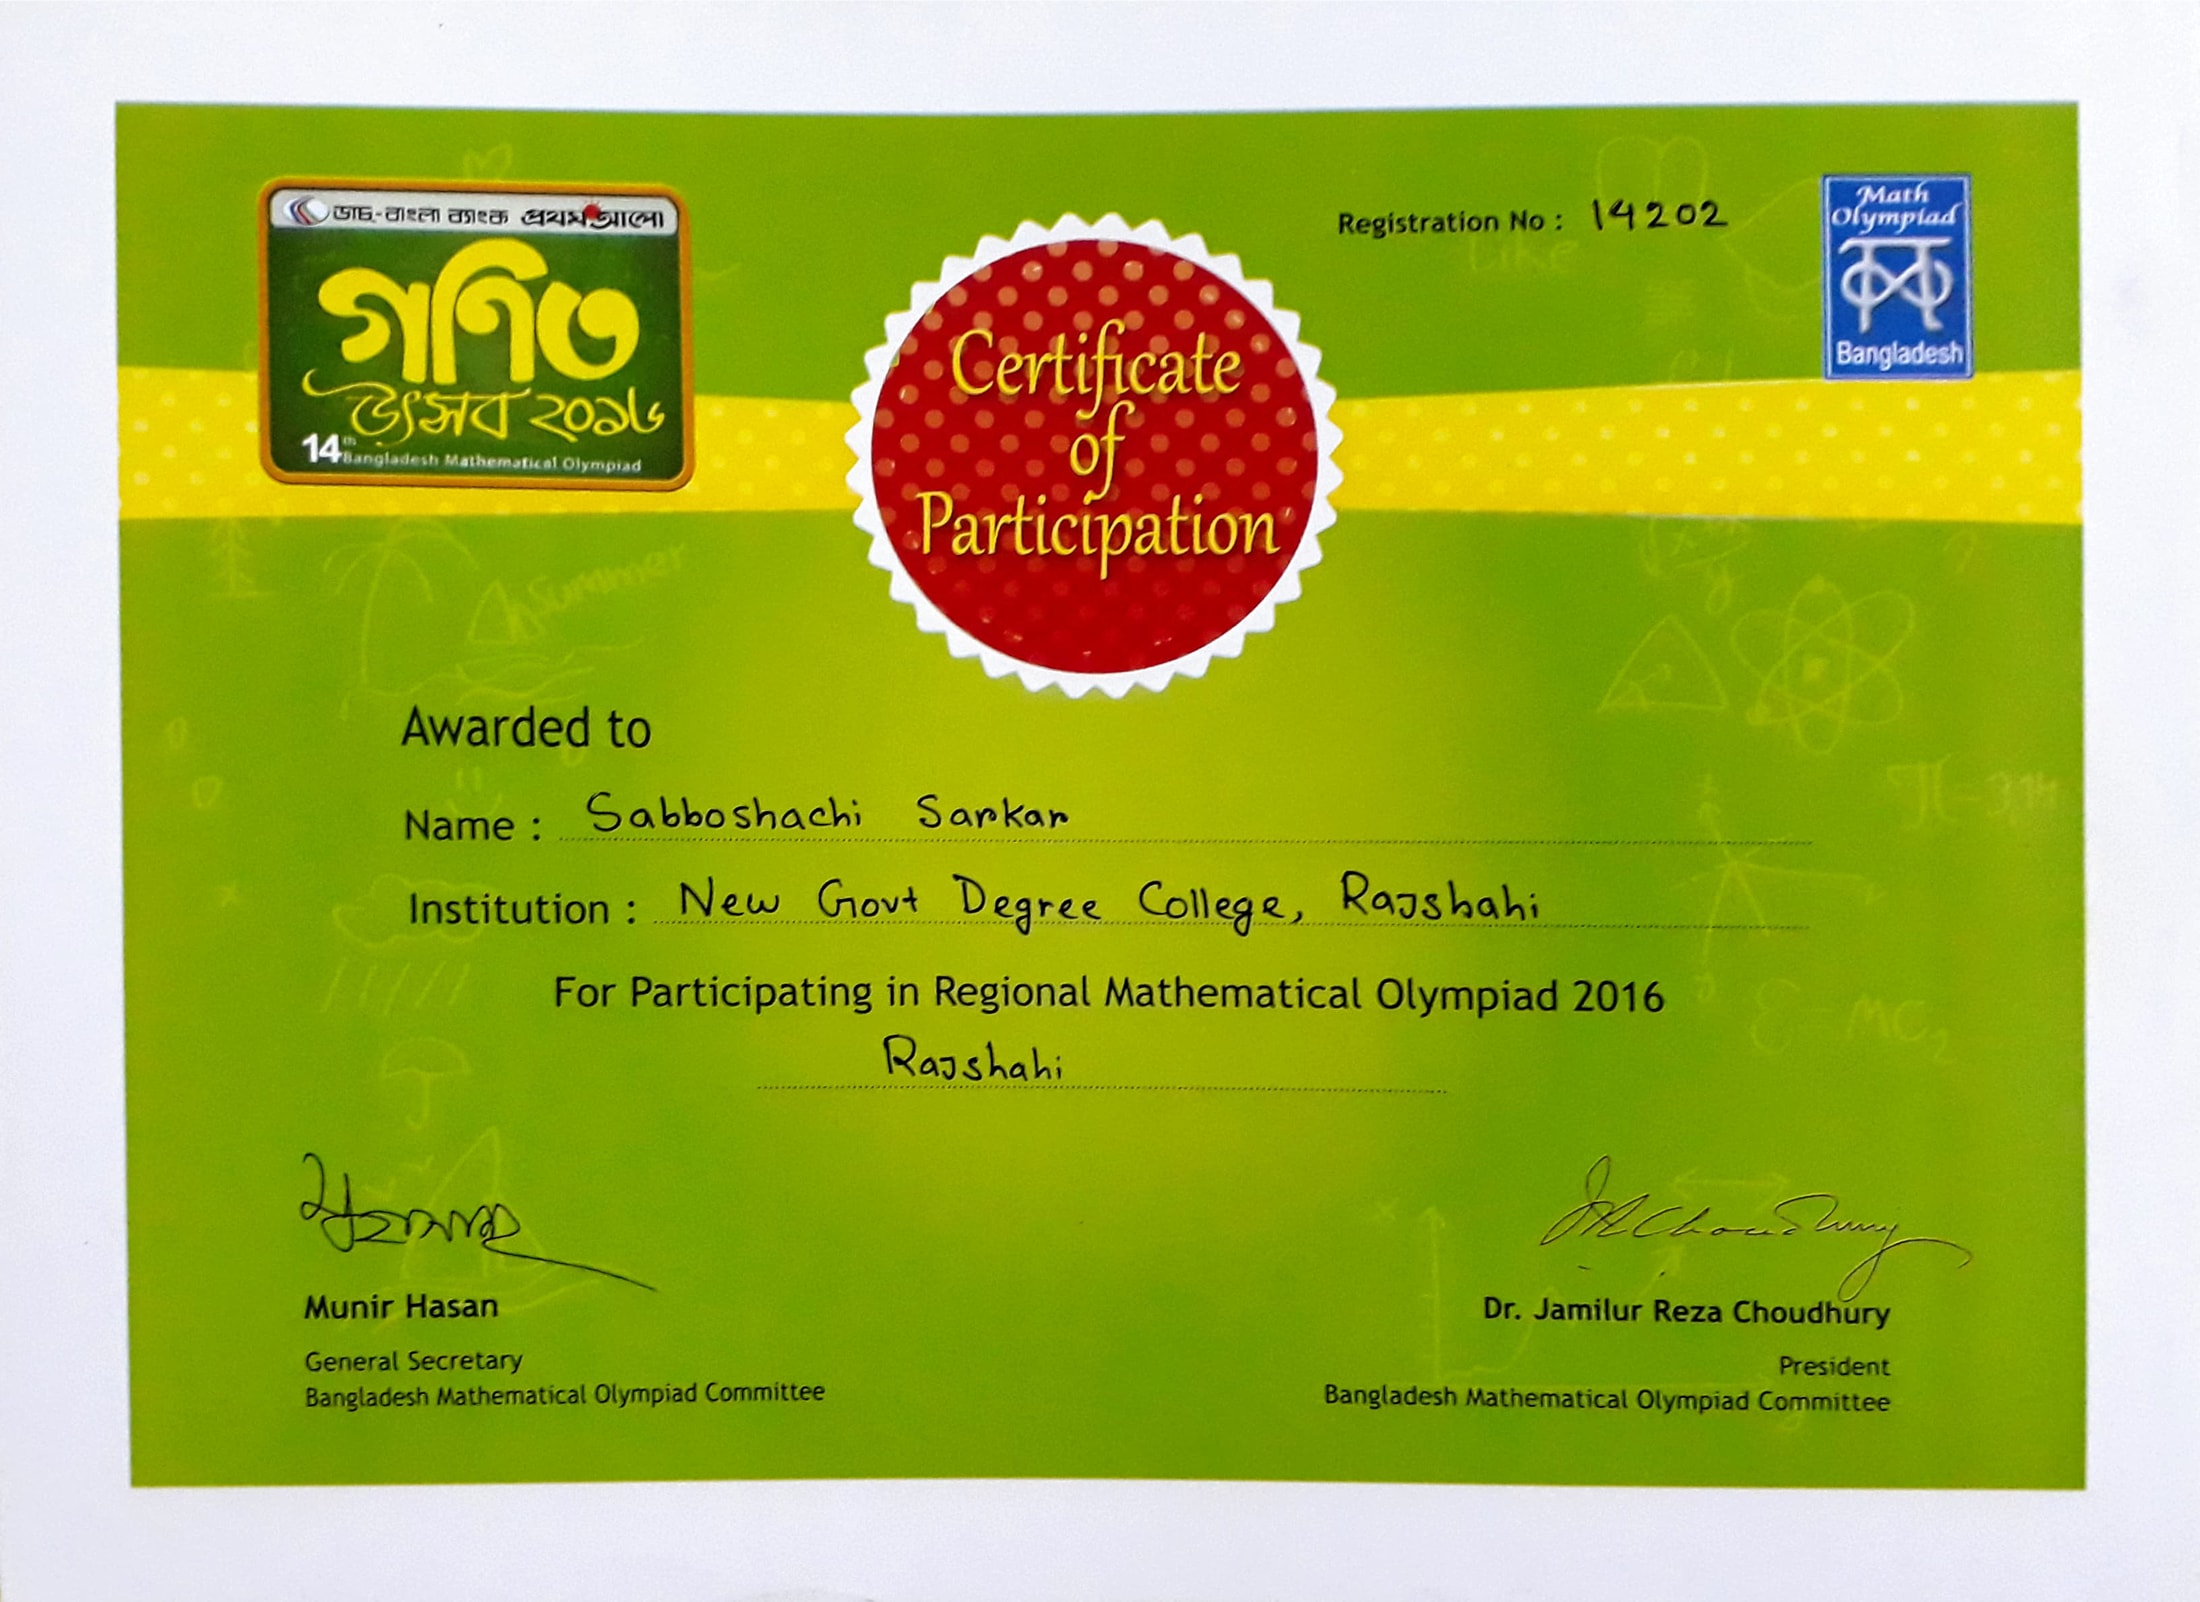 ডাচ্-বাংলা ব্যাংক প্রথম আলো
গণিত
উৎসব ২০১৬
14th Bangladesh Mathematical Olympiad
Certificate
of
Participation
Registration No : 14202
Math
Olympiad
Bangladesh
Summer
Like
Awarded to
Name : Sabboshachi Sarkar
Institution : New Govt Degree College, Rajshahi
For Participating in Regional Mathematical Olympiad 2016
Rajshahi
JRChoudhury
Munir Hasan
General Secretary
Bangladesh Mathematical Olympiad Committee
Dr. Jamilur Reza Choudhury
President
Bangladesh Mathematical Olympiad Committee